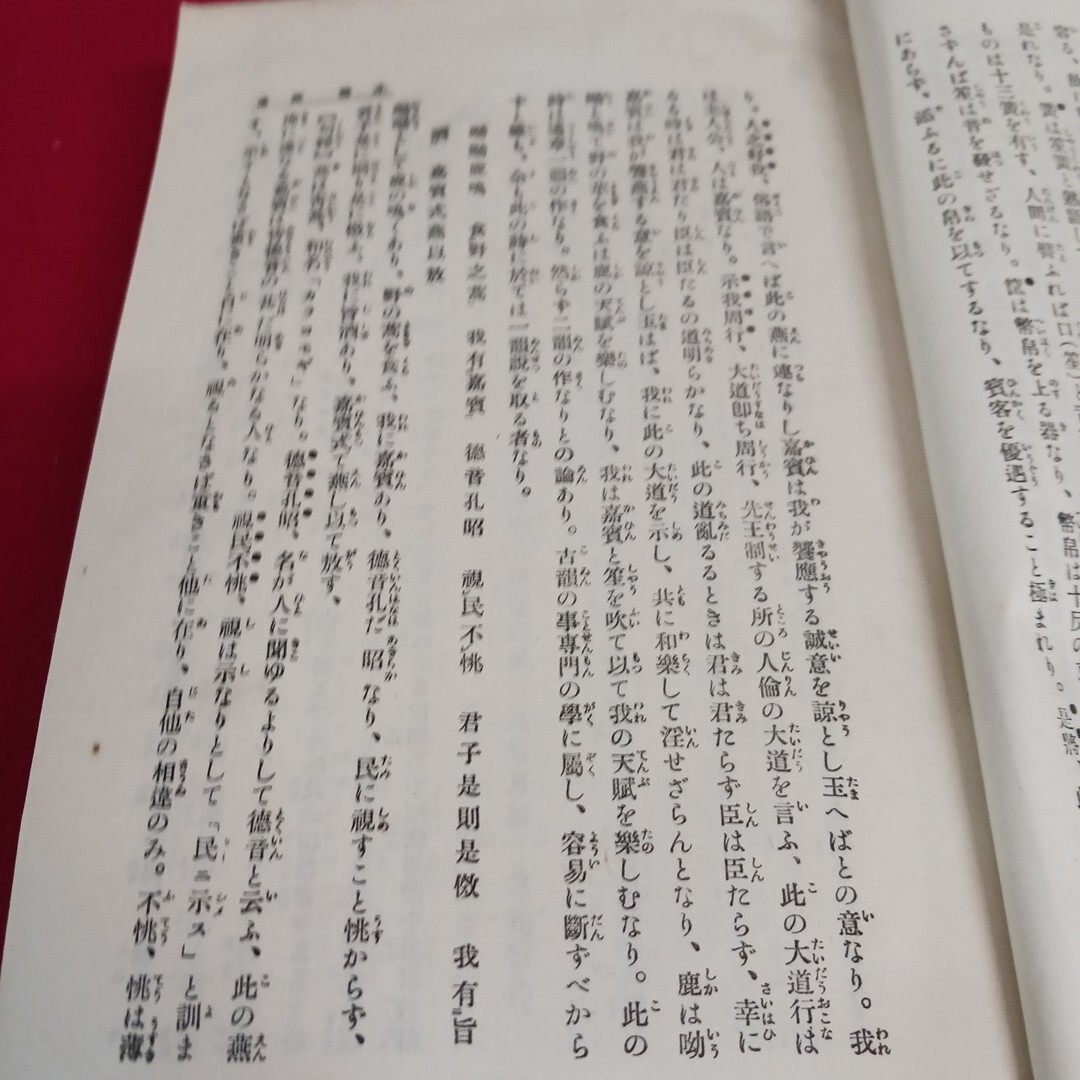 是れなり。簧は笙簧と熟語し
ものは十三簧を有す、人體に譬ふれば口（笙）と
さずんば笙は音を發せざるなり。筐は幣帛を上る器なり、幣帛は
にあらず、添ふるに此の帛を以てするなり、賓客を優遇すること極まれり。是將
り。人之好我、俗語で言へば此の燕に連なりし嘉賓は我が饗應する誠意を諒とし玉へばとの意なり。我
は主人公、人は嘉賓なり。示我周行、大道卽ち周行、先王制する所の人倫の大道を言ふ、此の大道行は
るる時は君は君たり臣は臣たるの道明らかなり、此の道亂るるときは君は君たらず臣は臣たらず、幸に
嘉賓は我が饗燕する意を諒とし玉はば、我に此の大道を示し、共に和樂して淫せざらんとなり、鹿は呦
呦と鳴て野の苹を食ふは鹿の天賦を樂しむなり、我は嘉賓と笙を吹て以て我の天賦を樂しむなり。此の
詩は通章一韻の作なり。然らず二韻の作なりとの論あり。古韻の事專門の學に屬し、容易に斷ずべから
ずと雖も、余り此の詩に於ては一韻說を取る者なり。
呦呦鹿鳴　食野之蒿　我有嘉賓　德音孔昭　視民不恌　君子是則是傚　我有旨
酒　嘉賓式燕以敖
呦呦として鹿の鳴くあり、野の蒿を食ふ、我に嘉賓あり、德音孔だ昭なり、民に視すこと恌からず、
君子是に則り是に傚ふ、我に旨酒あり、嘉賓式て燕し以て敖す、
蒿は靑蒿、和名「カワヨモギ」なり。德音孔昭、名が人に聞ゆるよりして德音と云ふ、此の燕
に明らかなる人なり。視民不恌、視は示なりとして「民ニ示ス」と訓ま
自に在り、視るとなさば重きこと他に在り、自他の相違のみ。不恌、恌は薄